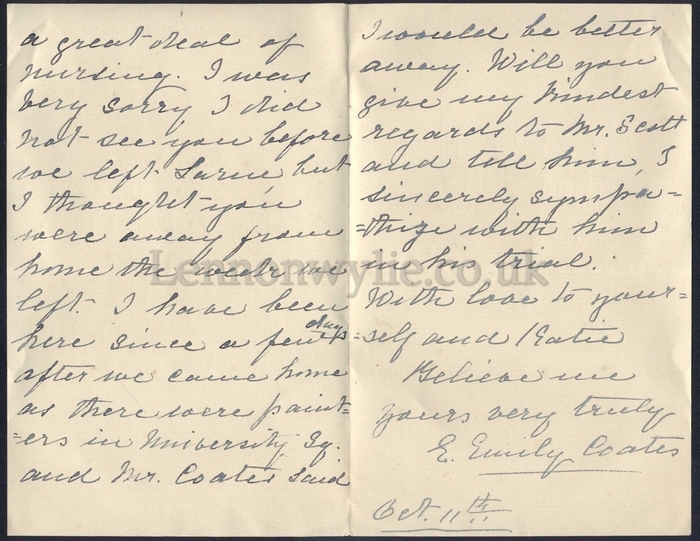 a great deal of
nursing. I was
very sorry I did
not see you before
we left Larne, but
I thought you
were away from
home the week we
left. I have been
here since a few days
after we came home
as there were paint-
=ers in University Sq.
and Mr. Coates said
I would be better
away. Will you
give my kindest
regards to Mr. Scott
and tell him, I
sincerely sympa=
=thize with him
in his trial.
With love to your=
=self and Katie
Believe me
yours very truly
E. Emily Coates
Oct. 11th
Lennonwylie.co.uk